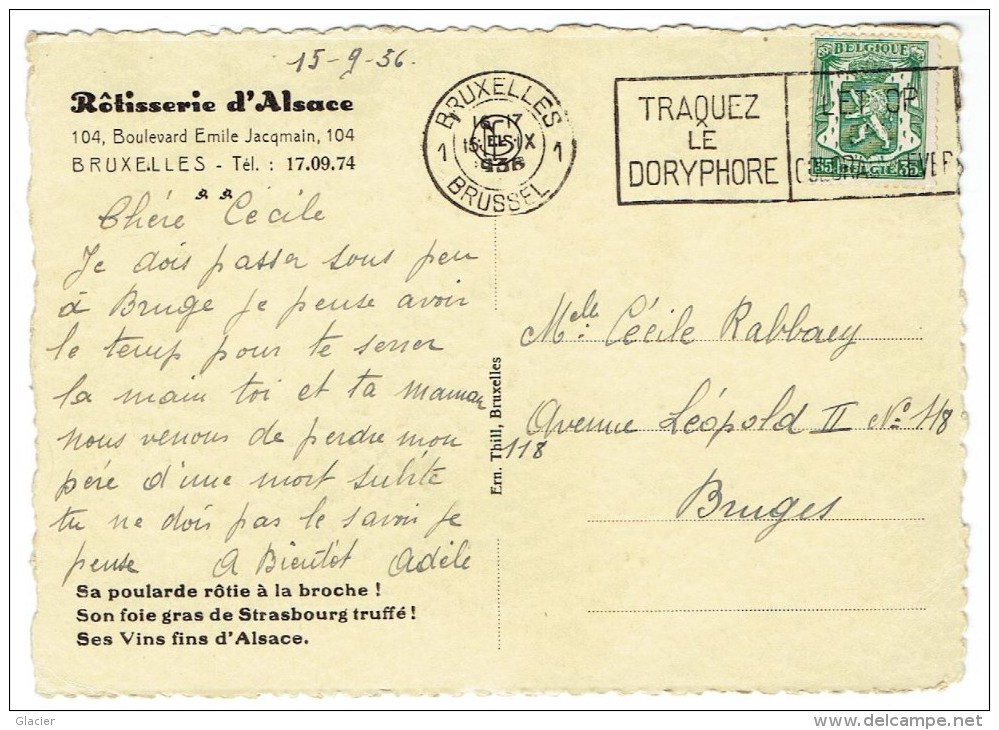 15-9-36.
Rôtisserie d'Alsace
104, Boulevard Emile Jacqmain, 104
BRUXELLES - Tél. : 17.09.74
Chére Cécile
Je dois passer sous peu
à Bruge je pense avoir
le temp pour te serrer
la main toi et ta maman
nous venons de perdre mon
pére d'une mort subite
tu ne dois pas le savoir je
pense A Bientôt Adèle
Sa poularde rôtie à la broche !
Son foie gras de Strasbourg truffé !
Ses Vins fins d'Alsace.
Ern. Thill, Bruxelles
BRUXELLES
16-17
15 IX
1 1
1936
BRUSSEL
TRAQUEZ
LE
DORYPHORE
LET OP
BELGIQUE
35 BELGIE 35
Melle Cécile Rabbaey
Avenue Léopold II No 118
118
Bruges
Glacier
delcampe.net